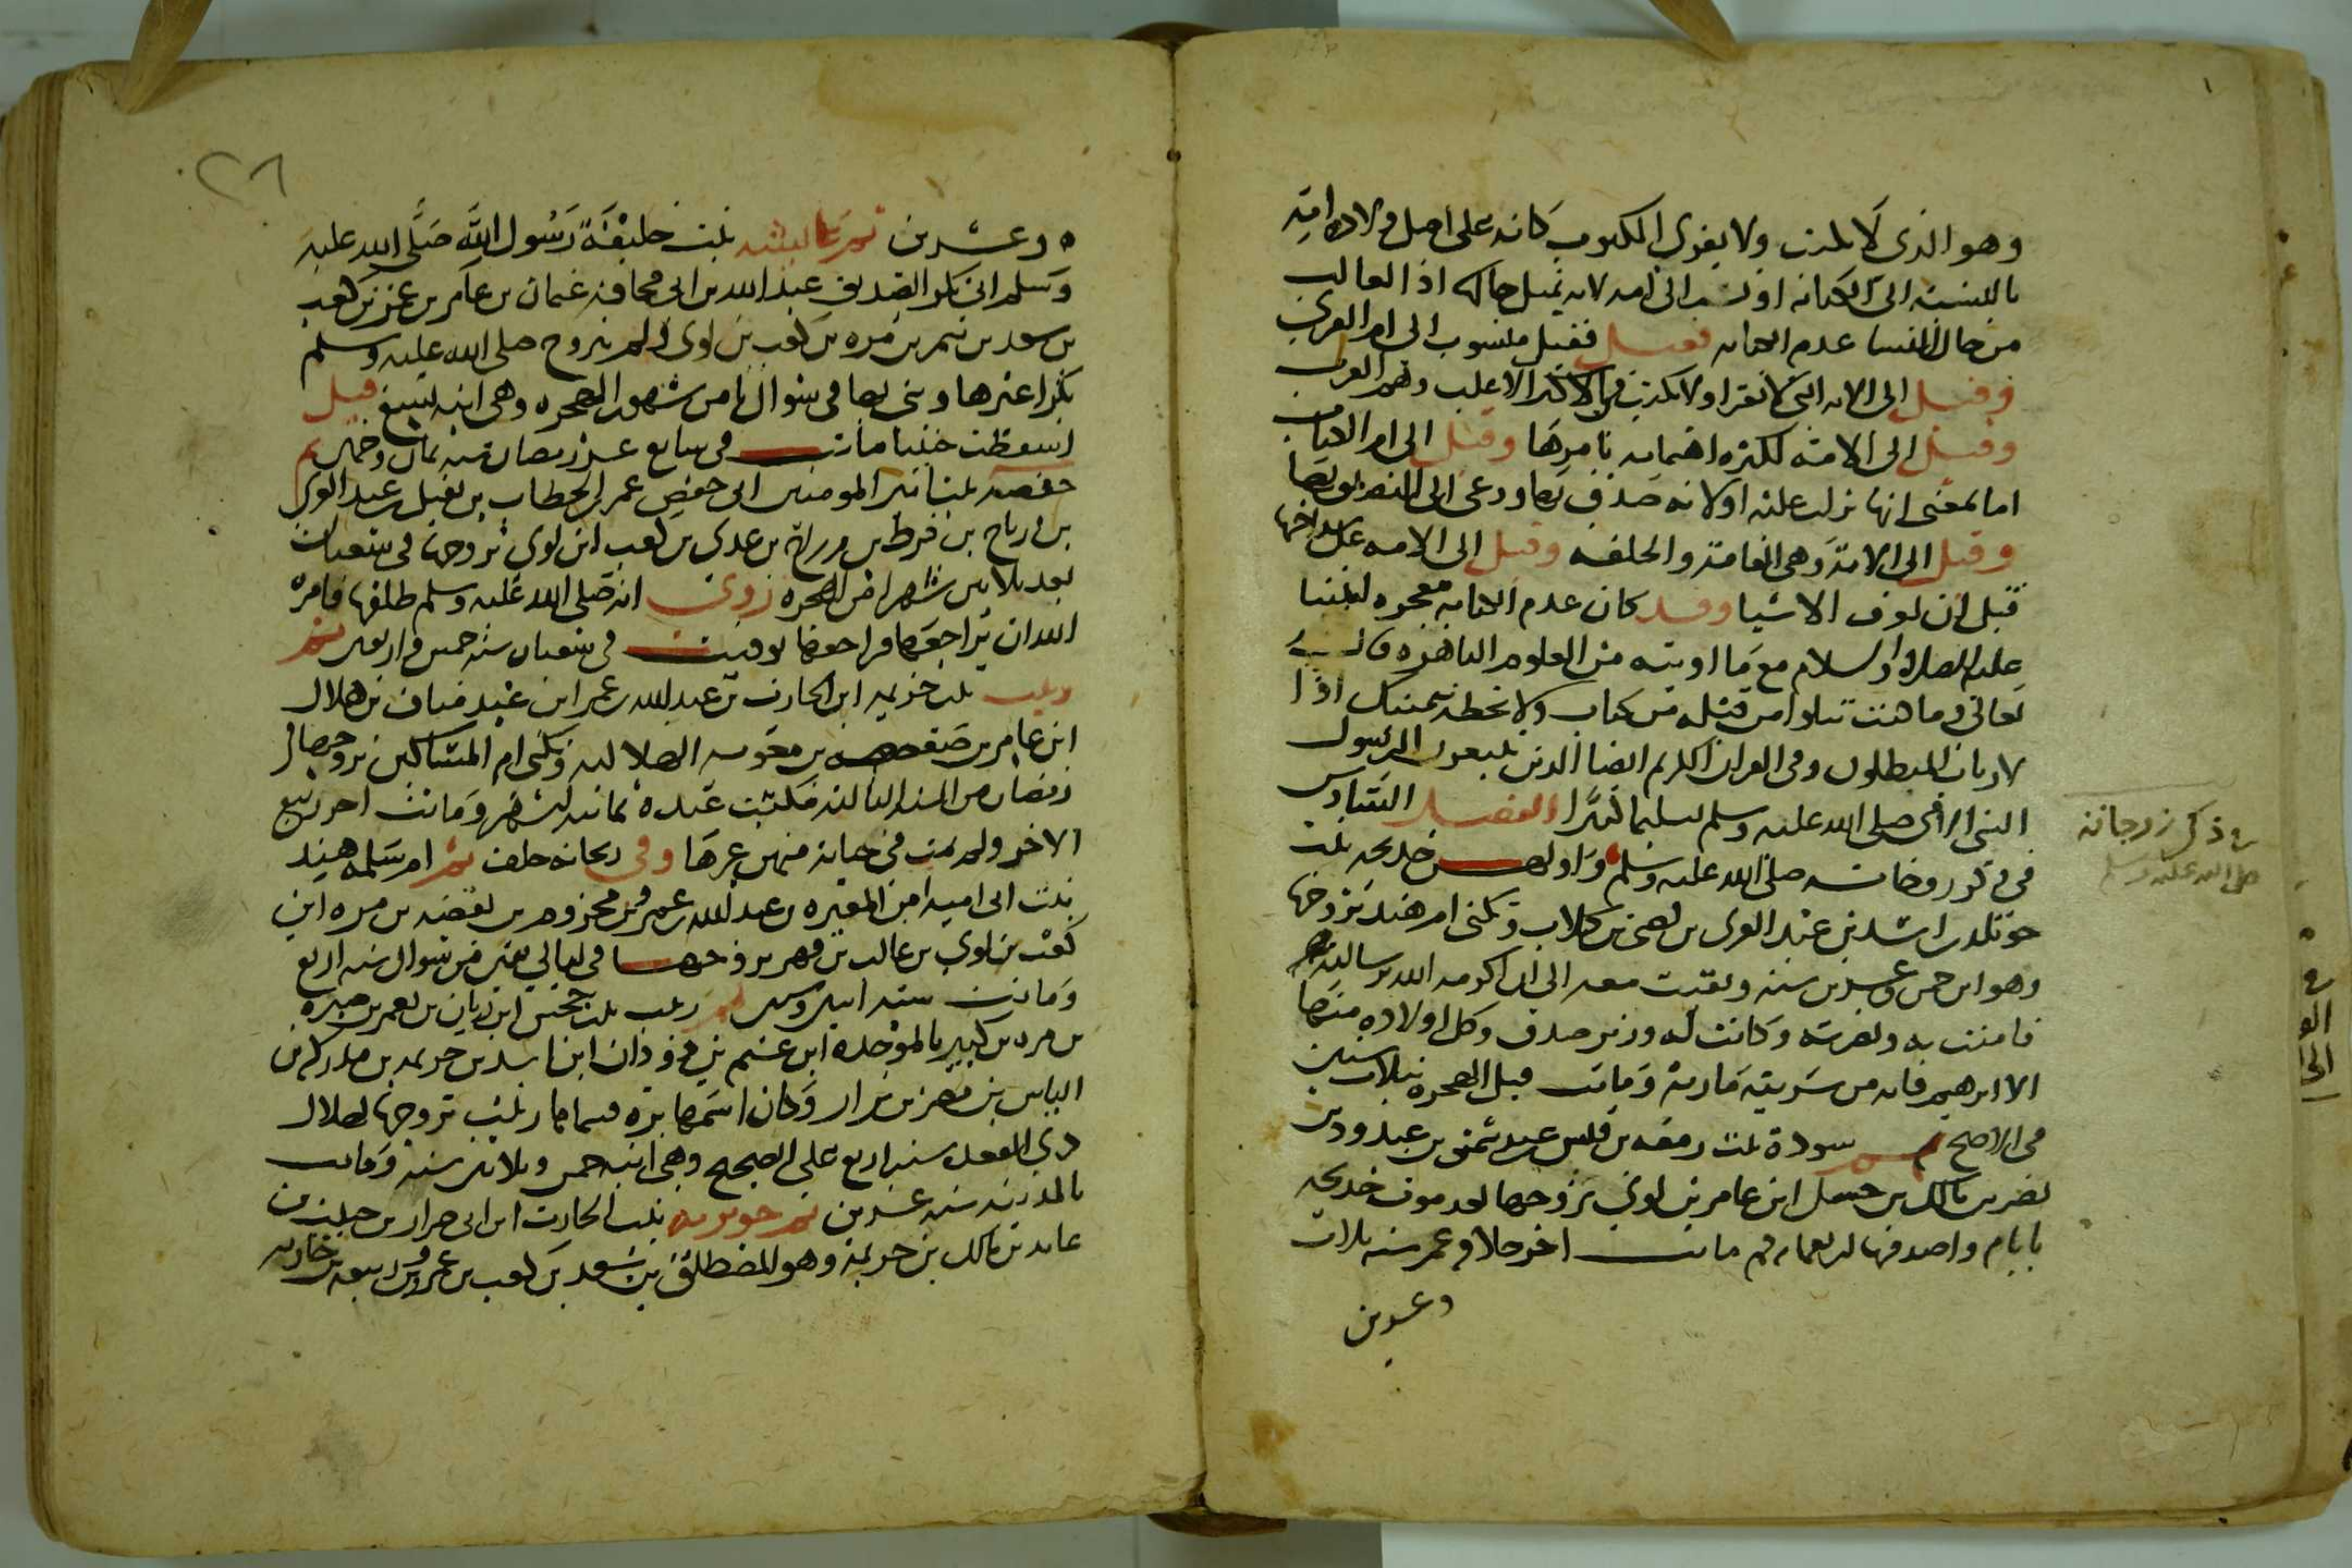 وهو الذي لا يكتب ولا يقرأ المكتوب كانه على اصل ولادة امه
بالنسبة الى الكتابة او نسب الى امه لانه بمثل حالها اذ الغالب
من حال النساء عدم الكتابه فقيل منسوب الى ام القرى
وقيل الى الامه التي لا تقرا ولا تكتب في الاكثر الاغلب وهم العرب
وقيل الى الامة لكثرة اهتمامه بامرها وقيل الى ام الكتاب
اما لمعنى انها نزلت عليه او لانه صدق بها ودعى الى التصديق بها
وقيل الى الامة وهي القامة والخلقه وقيل الى الامه على سداجتها
قبل ان تعرف الاشيا وقد كان عدم الكتابه معجزه لنبينا
عليه الصلاة والسلام مع ما اوتيه من العلوم الباهره قال
تعالى وما كنت تتلوا من قبله من كتاب ولا تخطه بيمينك اذا
لارتاب المبطلون وفي القران الكريم ايضا الذين يتبعون الرسول
النبي الامي صلى الله عليه وسلم تسليما كثيرا الفصل السادس
في ذكر زوجاته صلى الله عليه وسلم واولهن خديجه بنت
خويلد بن اسد بن عبد العزى بن قصي بن كلاب وتكنى ام هند تزوجها
وهو ابن خمس وعشرين سنه وبقيت معه الى ان اكرمه الله برسالته
فامنت به ونصرته وكانت له وزير صدق وكل اولاده منها
الا ابرهيم فانه من سريته مارية وماتت قبل الهجره بثلاث سنين
في الاصح ثم سودة بنت زمعه بن قيس بن عبد شمس بن عبد ود بن
نصر بن مالك بن حسل ابن عامر بن لوي تزوجها بعد موت خديجه
بايام واصدقها اربعمايه ثم ماتت اخر خلافة عمر سنه ثلاث
وعشرين
في ذكر زوجاته
صلى الله عليه وسلم
٢٨
وعشرين ثم عايشه بنت خليفة رسول الله صلى الله عليه
وسلم ابي بكر الصديق عبد الله بن ابي قحافه عثمان بن عامر بن عمرو بن كعب
بن سعد بن تيم بن مره بن كعب بن لوي ولم يتزوج صلى الله عليه وسلم
بكرا غيرها وبنى بها في شوال ثامن شهور الهجره وهي ابنه تسع قيل
اسقطت جنينا ماتت في سابع عشر رمضان سنه ثمان وخمسين ثم
حفصه بنت امير المومنين ابي حفص عمر بن الخطاب بن نفيل بن عبد العزى
بن رباح بن قرط بن رزاح بن عدي بن كعب ابن لوي تزوجها في شعبان
بعد ثلاثين شهرا من الهجره روي انه صلى الله عليه وسلم طلقها فامره
الله ان يراجعها فراجعها توفيت في شعبان سنه خمس واربعين ثم
زينب بنت خزيمه ابن الحارث بن عبد الله بن عمر ابن عبد مناف بن هلال
ابن عامر بن صعصعه بن معويه الهلاليه وتكنى ام المساكين تزوجها في
رمضان من السنه الثالثه فمكثت عنده ثمانيه اشهر وماتت اخر ربيع
الاخر ولم يمت في حياته منهن غيرها وفي ريحانه خلف ثم ام سلمه هند
بنت ابي اميه ابن المغيره بن عبد الله بن عمر بن مخزوم بن يقظه بن مره ابن
كعب بن لوي بن غالب بن فهر تزوجها في ليالي بقين من شوال سنه اربع
وماتت سنه اثنين وستين ثم زينب بنت جحش ابن رياب بن يعمر بن صبره
بن مره بن كبير بالموحده ابن غنم بن دودان ابن اسد بن خزيمه بن مدركه بن
الياس بن مضر بن نزار وكان اسمها بره فسماها زينب تزوجها لهلال
ذي القعده سنه اربع على الصحيح وهي ابنه خمس وثلاثين سنة وماتت
بالمدينه سنه عشرين ثم جويريه بنت الحارث ابن ابي ضرار بن حبيب بن
عايد بن مالك بن خزيمة وهو المصطلق بن سعد بن كعب بن عمرو بن ربيعه بن حارثه